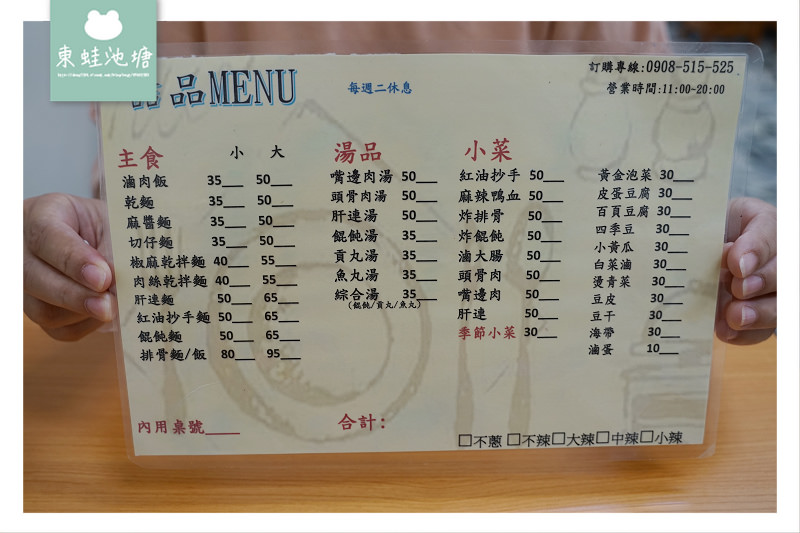 東蛙池塘
品MENU
每週二休息
訂購專線:0908-515-525
營業時間:11:00~20:00
主食 小 大
滷肉飯 35___ 50___
乾麵 35___ 50___
麻醬麵 35___ 50___
切仔麵 35___ 50___
椒麻乾拌麵 40___ 55___
肉絲乾拌麵 40___ 55___
肝連麵 50___ 65___
紅油抄手麵 50___ 65___
餛飩麵 50___ 65___
排骨麵/飯 80___ 95___
內用桌號____
湯品
嘴邊肉湯 50___
頭骨肉湯 50___
肝連湯 50___
餛飩湯 35___
貢丸湯 35___
魚丸湯 35___
綜合湯 35___
(餛飩/貢丸/魚丸)
合計:
小菜
紅油抄手 50___
麻辣鴨血 50___
炸排骨 50___
炸餛飩 50___
滷大腸 50___
頭骨肉 50___
嘴邊肉 50___
肝連 50___
季節小菜 30___
黃金泡菜 30___
皮蛋豆腐 30___
百頁豆腐 30___
四季豆 30___
小黃瓜 30___
白菜滷 30___
燙青菜 30___
豆皮 30___
豆干 30___
海帶 30___
滷蛋 10___
□不蔥 □不辣□大辣□中辣□小辣